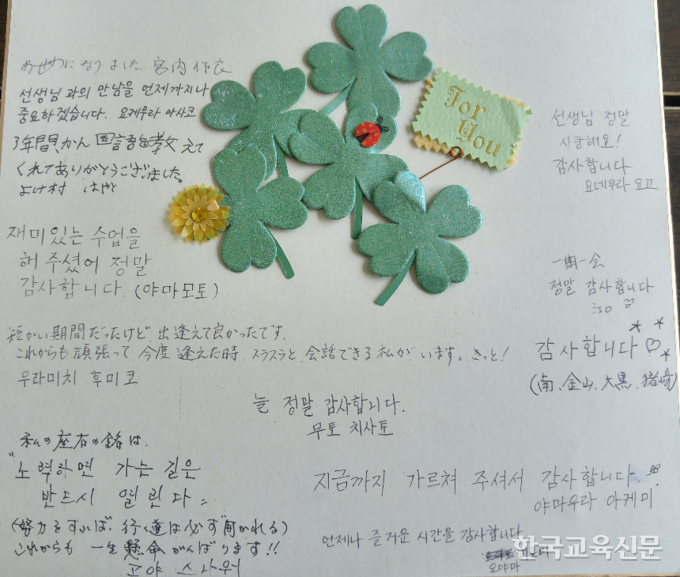 おせわになりました 宮内
선생님과의 만남을 언제까지나
중요하겠습니다. 요케무라 아사코
3年間かん 国言語を教えて
くれてありがとうございました。
よけ村 はやと
재미있는 수업을
해 주셨어 정말
감사합니다 (야마모토)
短かい期間だったけど 出逢えて良かったです。
これからも頑張って 今度 逢えた時 スラスラと 会話できる私がいます。きっと!
우라미치 후미코
늘 정말 감사합니다.
무토 치사토
私の座右の銘は、
"노력하면 가는 길은
반드시 열린다"
(努力をすれば 行く道は必ず開かれる)
これからも 一生懸命がんばります!!
고야 스
지금까지 가르쳐 주셔서 감사합니다.
야마우라 아케미
언제나 즐거운 시간을 감사합니다
오야마
For
You
선생님 정말
사랑해요!
감사합니다
요네무라 요코
一期一会
정말 감사합니다
감사합니다♡
(南、金山、大黒、猪﨑)
한국교육신문